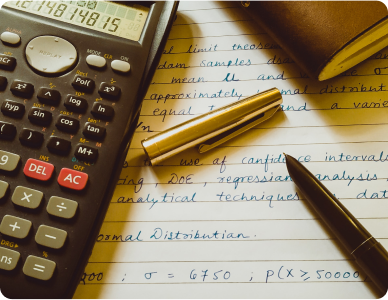 12148148 15
MODE ON
Pol( x³
ncr x² ^ log ln
hyp sin cos tan
) , M+
9 DEL AC
× ÷
+ −
DRG▸ %
Ans =
l limit theorem
dom samples dis
mean μ and
approximately normal distribut
equal t and a varia
n
use of confidence intervals
ing, DOE, regression analysis,
analytical techniques dat
ormal Distribution.
00 ; σ = 6750 ; p(X ≥ 50000